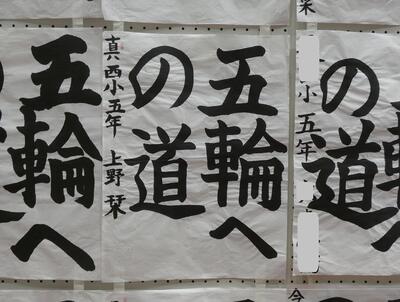 の道
小五年
五輪へ
の道
真西小五年 上野 栞
五輪へ
今